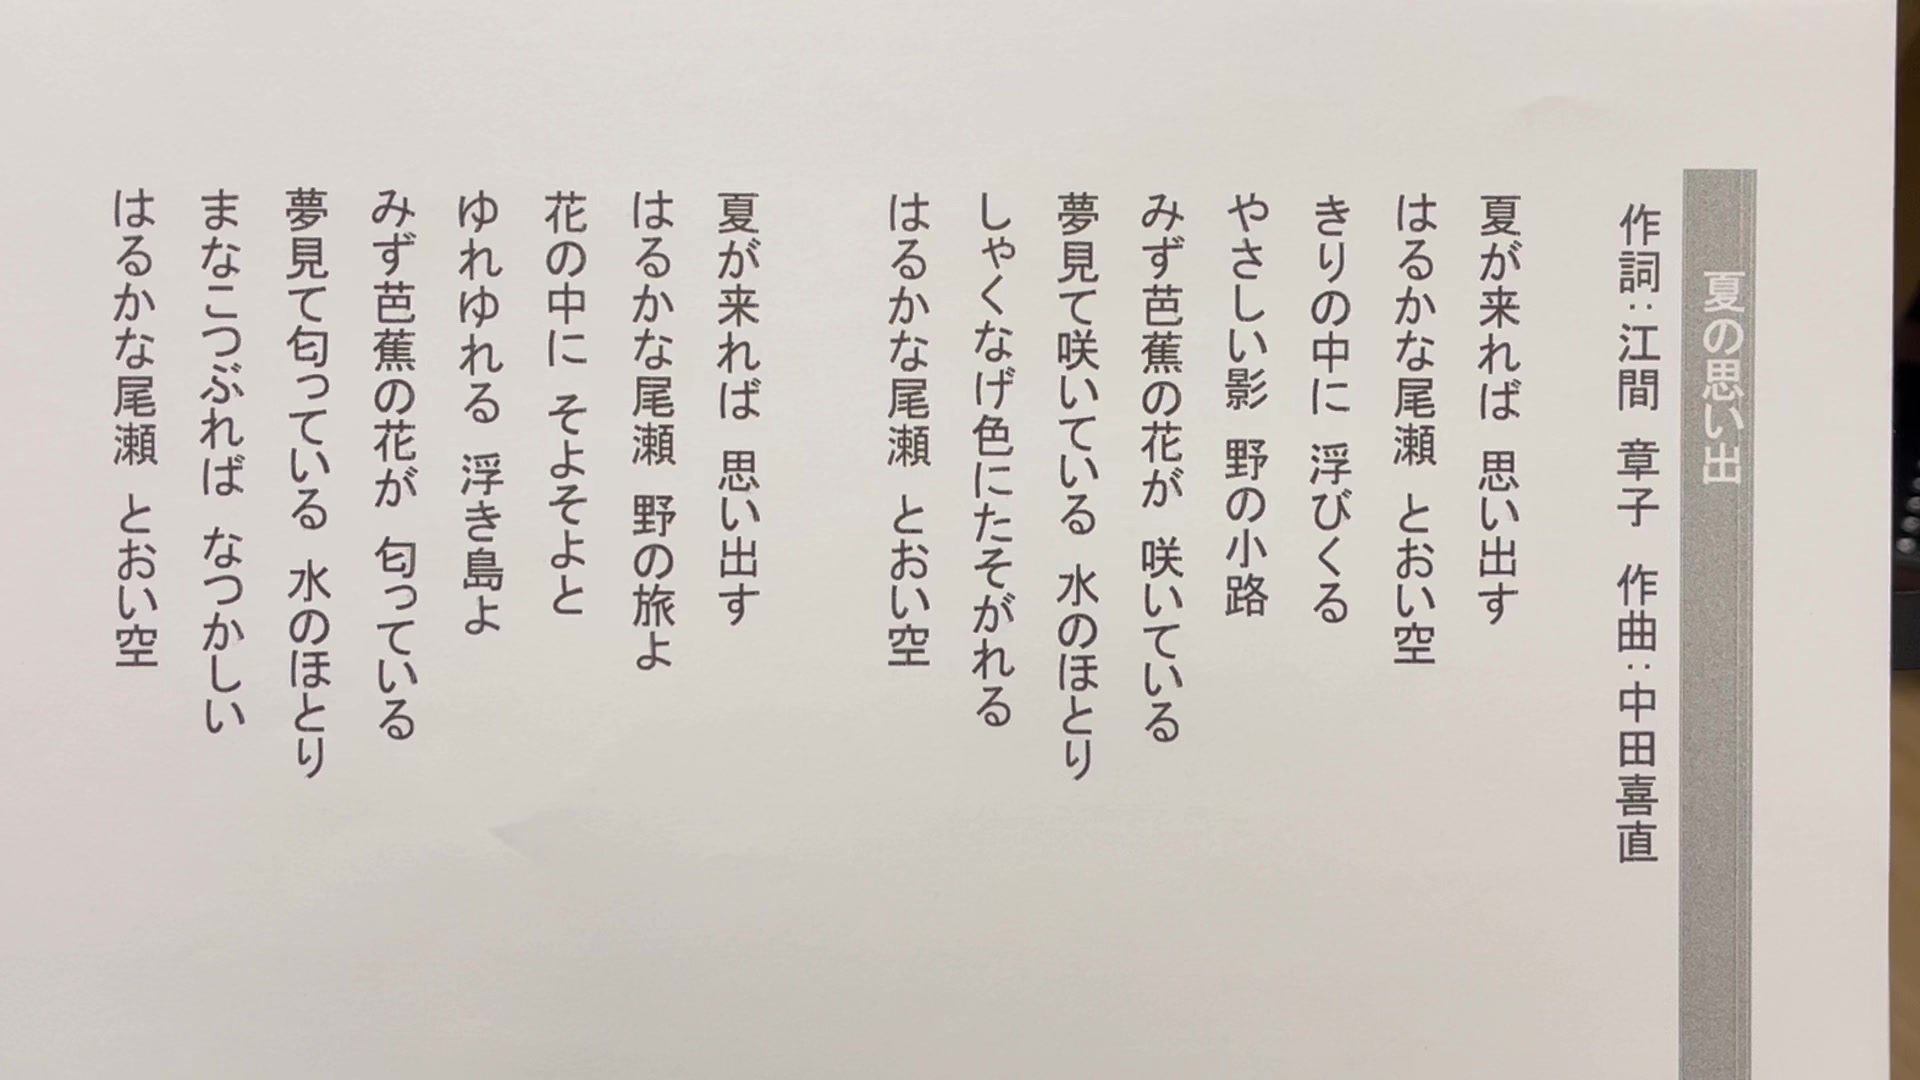 夏の思い出
作詞:江間 章子 作曲:中田喜直
夏が来れば 思い出す
はるかな尾瀬 とおい空
きりの中に 浮びくる
やさしい影 野の小路
みず芭蕉の花が 咲いている
夢見て咲いている 水のほとり
しゃくなげ色にたそがれる
はるかな尾瀬 とおい空
夏が来れば 思い出す
はるかな尾瀬 野の旅よ
花の中に そよそよと
ゆれゆれる 浮き島よ
みず芭蕉の花が 匂っている
夢見て匂っている 水のほとり
まなこつぶれば なつかしい
はるかな尾瀬 とおい空